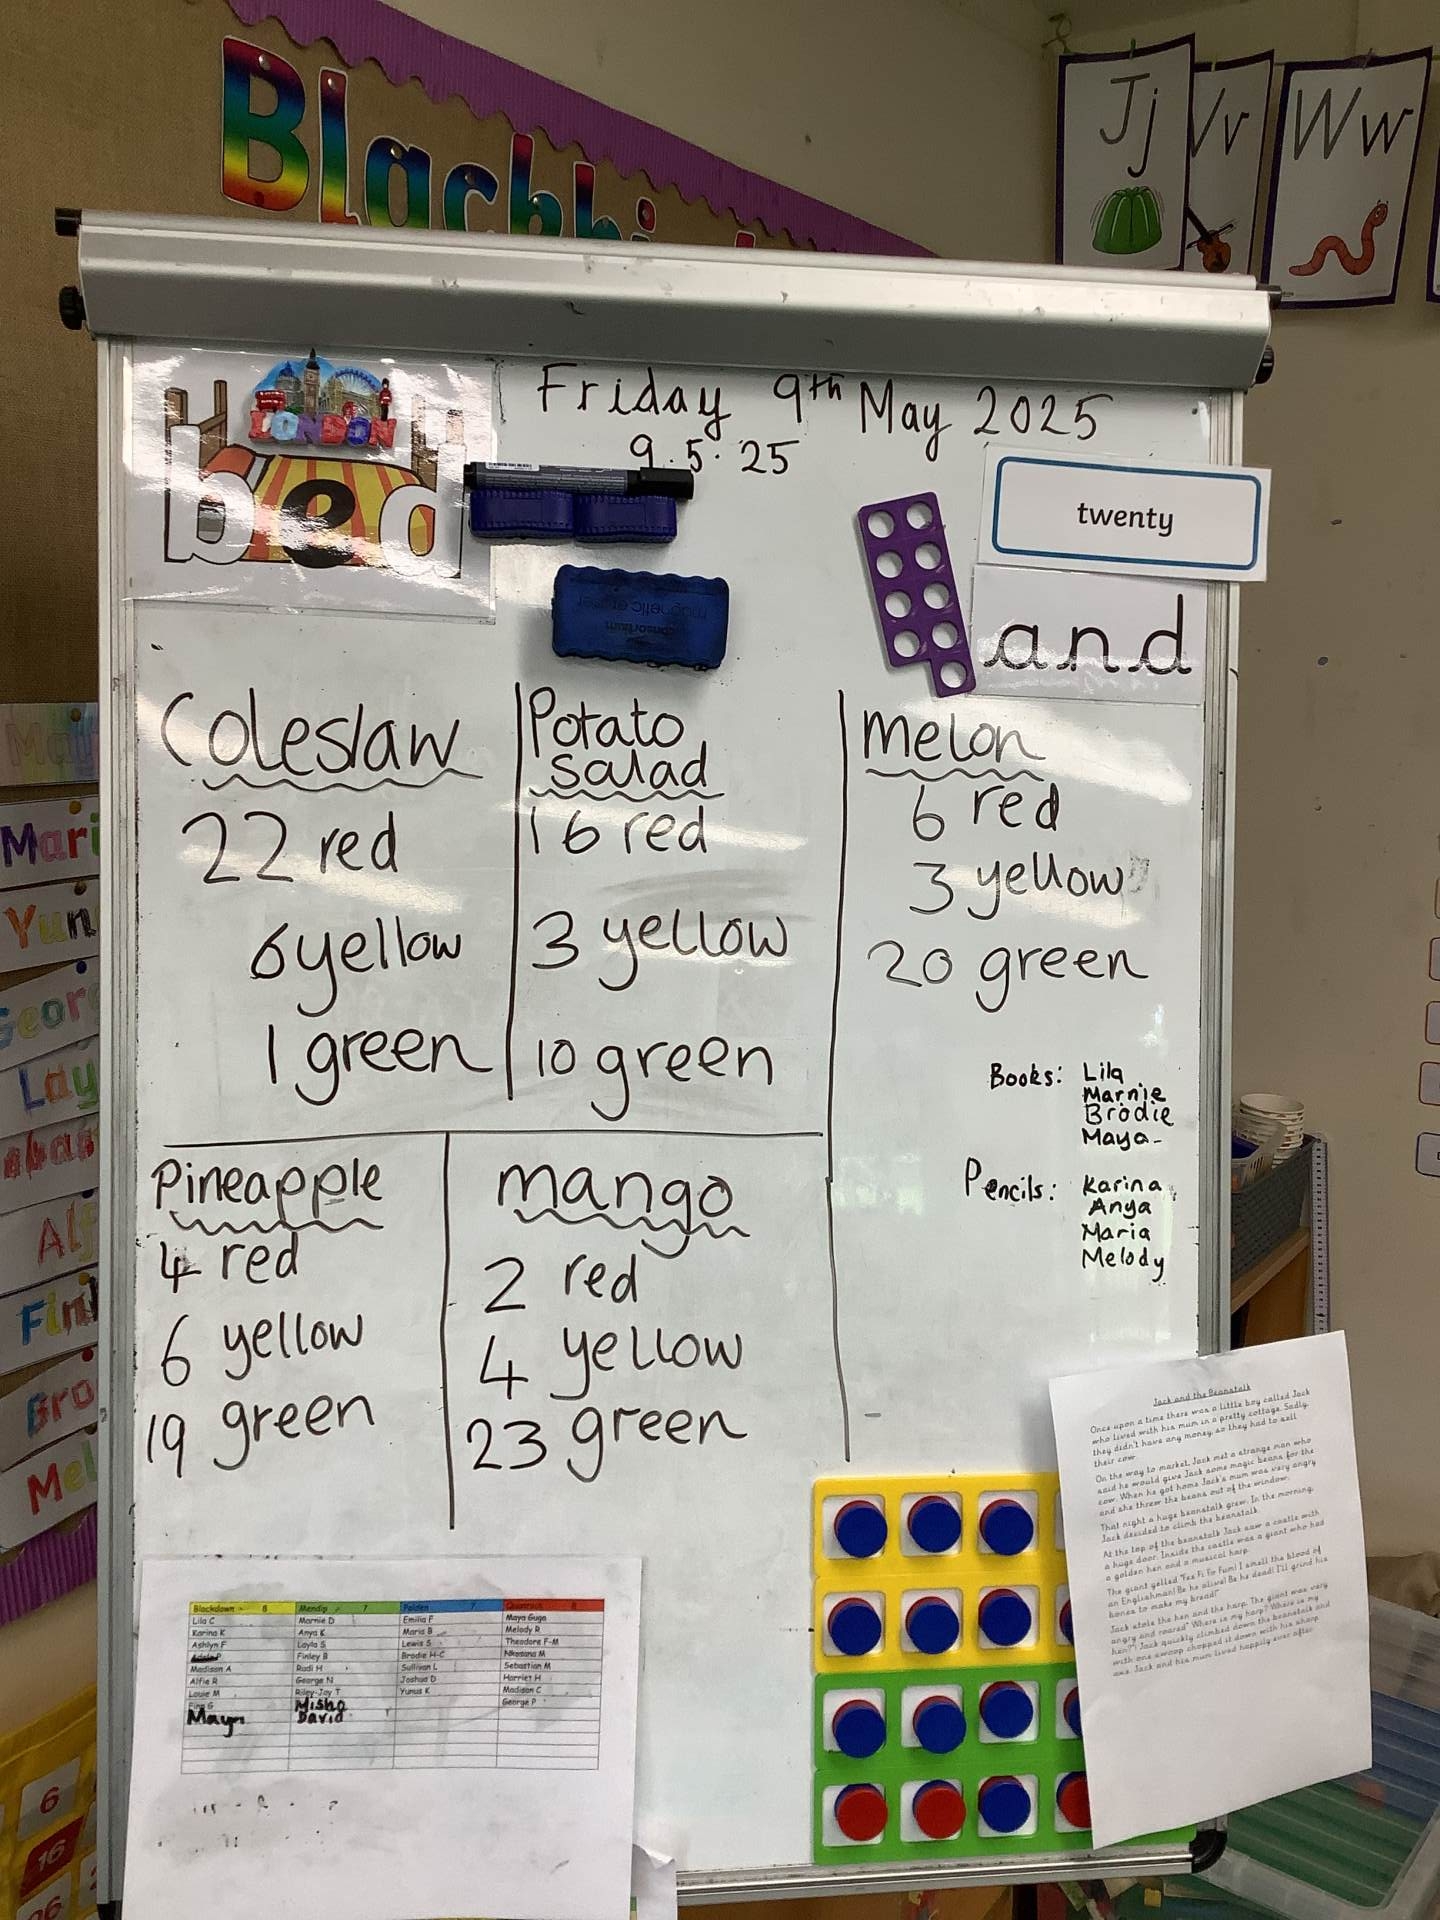 Jj
Vv
Ww
LONDON
bed
Friday 9th May 2025
9.5.25
twenty
and
magnetic eraser
consortium
Coleslaw
22 red
6 yellow
1 green
Potato
salad
16 red
3 yellow
10 green
Melon
6 red
3 yellow
20 green
Books: Lila
Marnie
Brodie
Maya
Pencils: Karina
Anya
Maria
Melody
Pineapple
4 red
6 yellow
19 green
mango
2 red
4 yellow
23 green
Jack and the Beanstalk
Once upon a time there was a little boy called Jack
who lived with his mum in a pretty cottage. Sadly,
they didn't have any money, so they had to sell
their cow.
On the way to market, Jack met a strange man who
said he would give Jack some magic beans for the
cow. When he got home Jack's mum was very angry
and she threw the beans out of the window.
That night a huge beanstalk grew. In the morning,
Jack decided to climb the beanstalk.
At the top of the beanstalk Jack saw a castle with
a huge door. Inside the castle was a giant who had
a golden hen and a musical harp.
The giant yelled "Fee Fi Fo Fum! I smell the blood of
an Englishman! Be he alive! Be he dead! I'll grind his
bones to make my bread!"
Jack stole the hen and the harp. The giant was very
angry and roared" Where is my harp? Where is my
hen?"! Jack quickly climbed down the beanstalk and
with one swoop chopped it down with his sharp
axe. Jack and his mum lived happily ever after.
Blackdown 8 Mendip 7 Polden 7 Quantock 8
Lila C Marnie D Emilia F Maya Guga
Karina K Anya K Maria B Melody R
Ashlyn F Layla S Lewis S Theodore F-M
Finley B Brodie H-C Nkosana M
Madison A Radi H Sullivan L Sebastian M
Alfie R George N Joshua D Harriet H
Louie M Riley-Jay T Yunus K Madison C
Finn G Misha George P
David
6
16